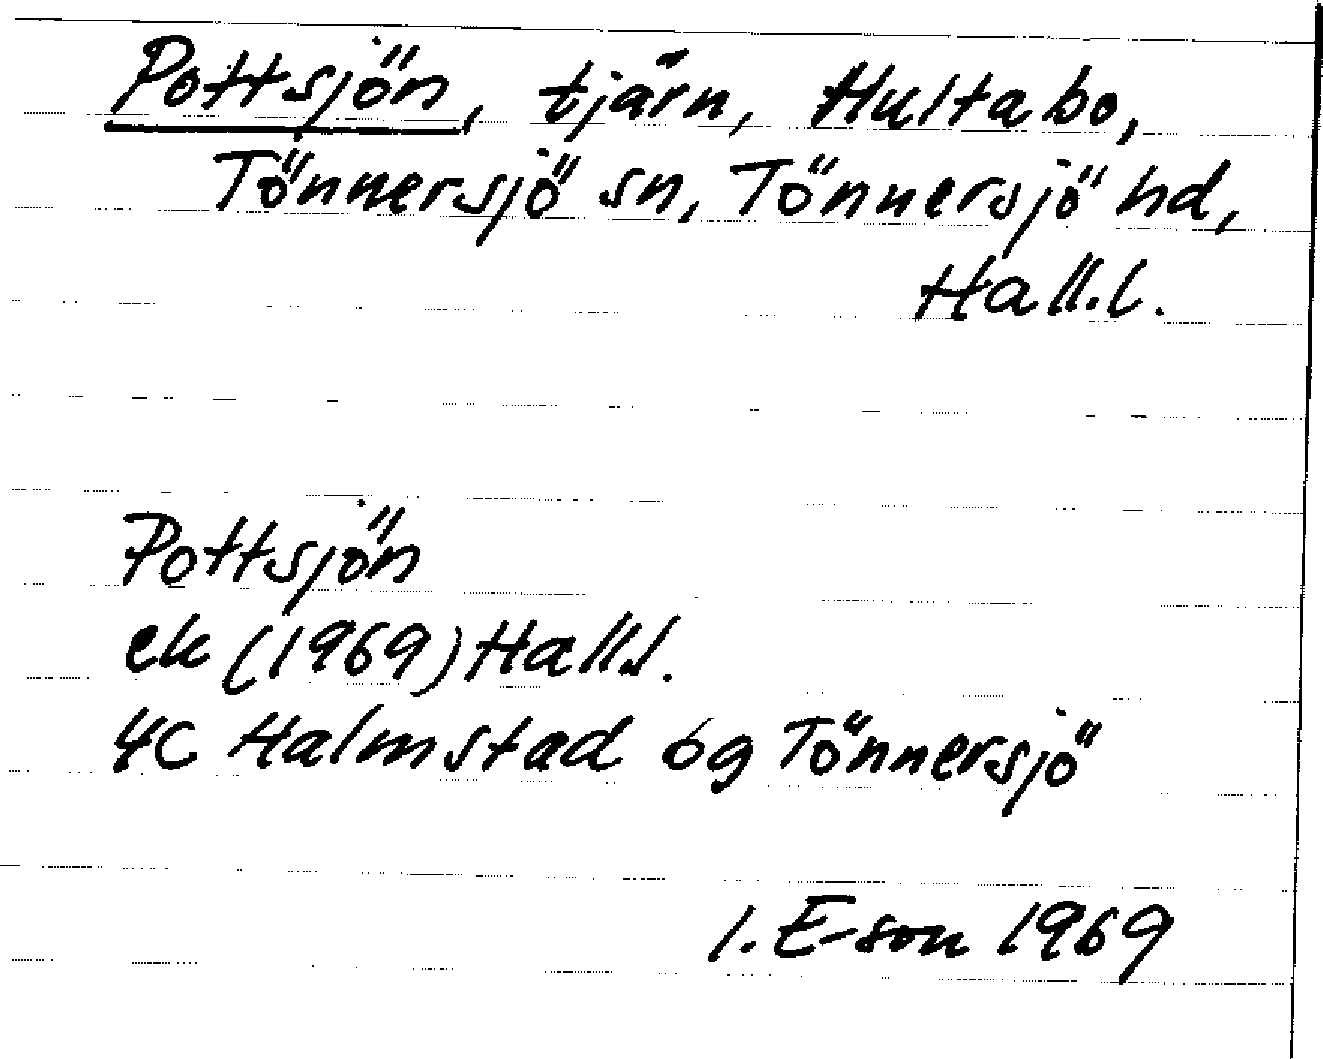 Pottsjön, tjärn, Hultabo,
Tönnersjö sn, Tönnersjö hd,
Hall.l.
Pottsjön
ek (1969) Hall.l.
4C Halmstad 6g Tönnersjö
I. E-son 1969